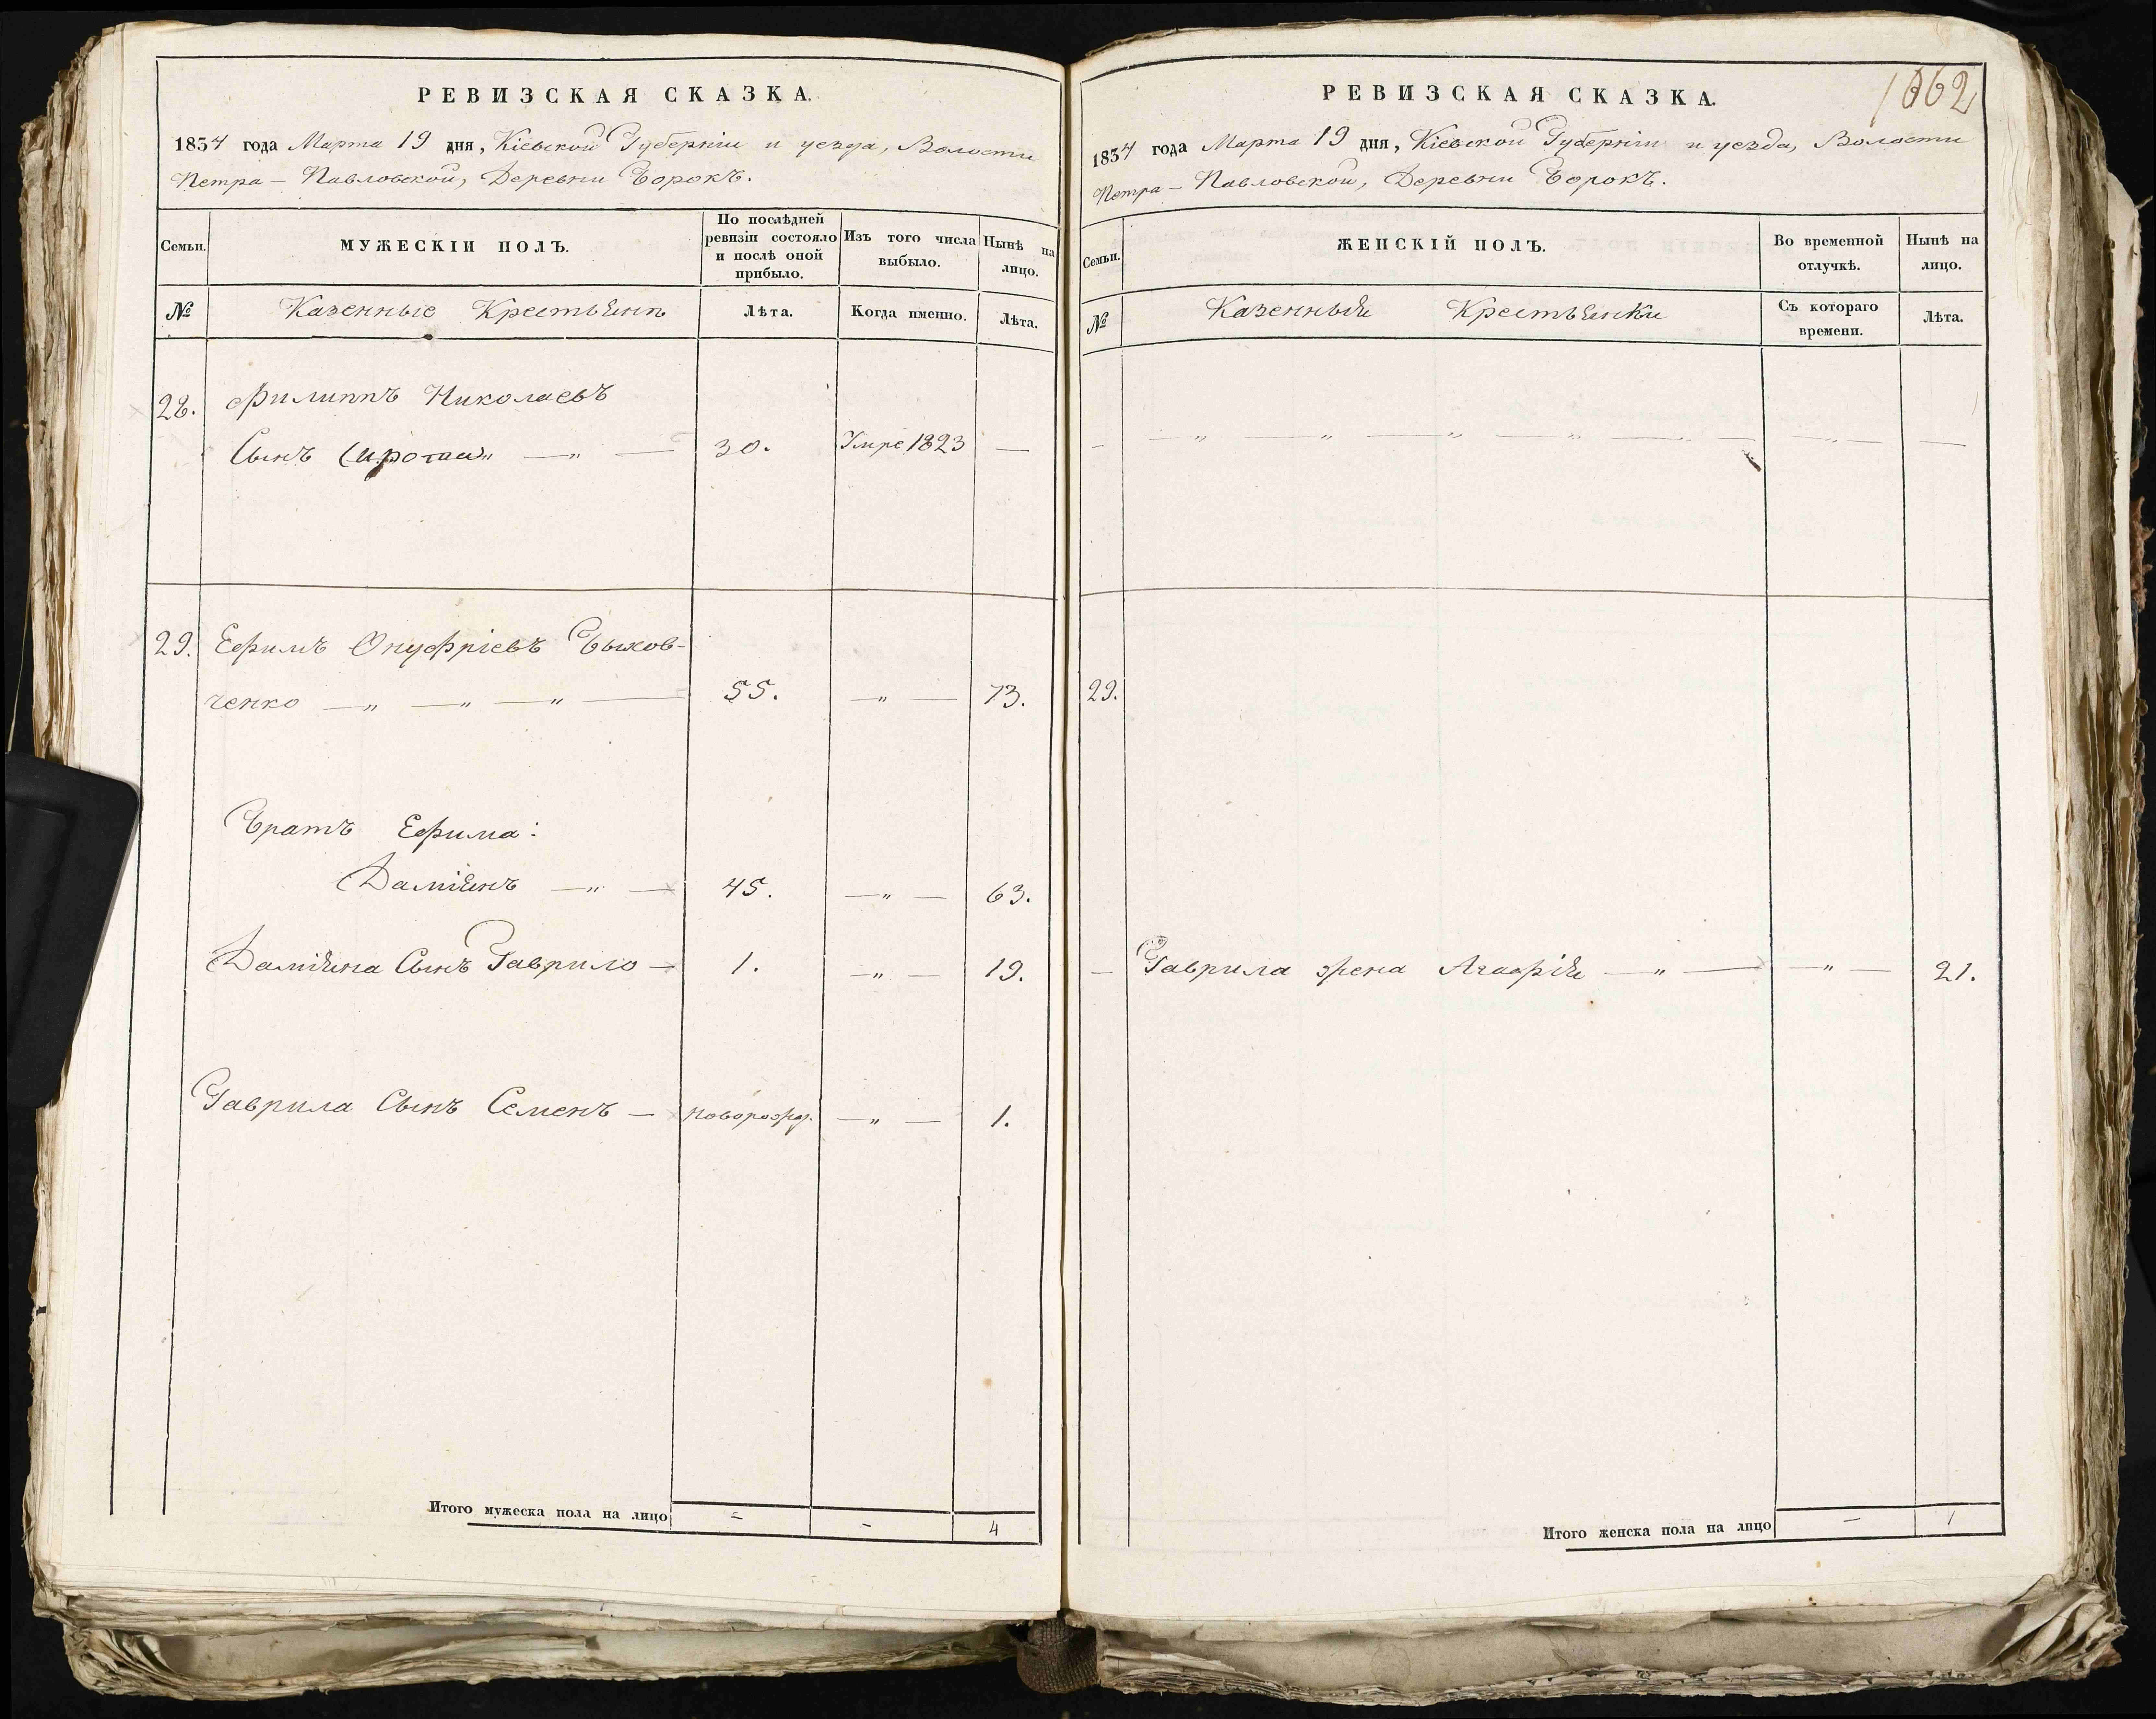 РЕВИЗСКАЯ СКАЗКА.
1834 года Марта 19 дня, Кіевской Губерніи и уезда, Волости
Петра-Павловской, Деревни Борокъ.
Семьи.
МУЖЕСКІЙ ПОЛЪ.
По послѣдней
ревизіи состояло
и послѣ оной
прибыло.
Изъ того числа
выбыло.
Нынѣ на
лицо.
№
Казенные Крестьяне
Лѣта.
Когда именно.
Лѣта.
28. Филиппъ Николаевъ
Сынъ Сироты „ — „ — 30. Умре 1823 —
29. Ефимъ Онуфріевъ Быков-
ченко — „ — „ — „ — 55. — „ — 73.
Братъ Ефима:
Даміянъ — „ — 45. — „ — 63.
Даміяна Сынъ Гаврило — 1. — „ — 19.
Гаврила Сынъ Семенъ —Новорожд. — „ — 1.
Итого мужеска пола на лицо = - 4
1062
РЕВИЗСКАЯ СКАЗКА.
1834 года Марта 19 дня, Кіевской Губерніи и уезда, Волости
Петра-Павловской, Деревни Борокъ.
Семьи.
ЖЕНСКІЙ ПОЛЪ.
Во временной
отлучкѣ.
Нынѣ на
лицо.
№
Казенныя Крестьянки
Съ котораго
времени.
Лѣта.
— — „ — „ — „ — „ — „ — „ — —
29.
— Гаврила жена Агафія — „ — — „ — 21.
Итого женска пола на лицо — 1